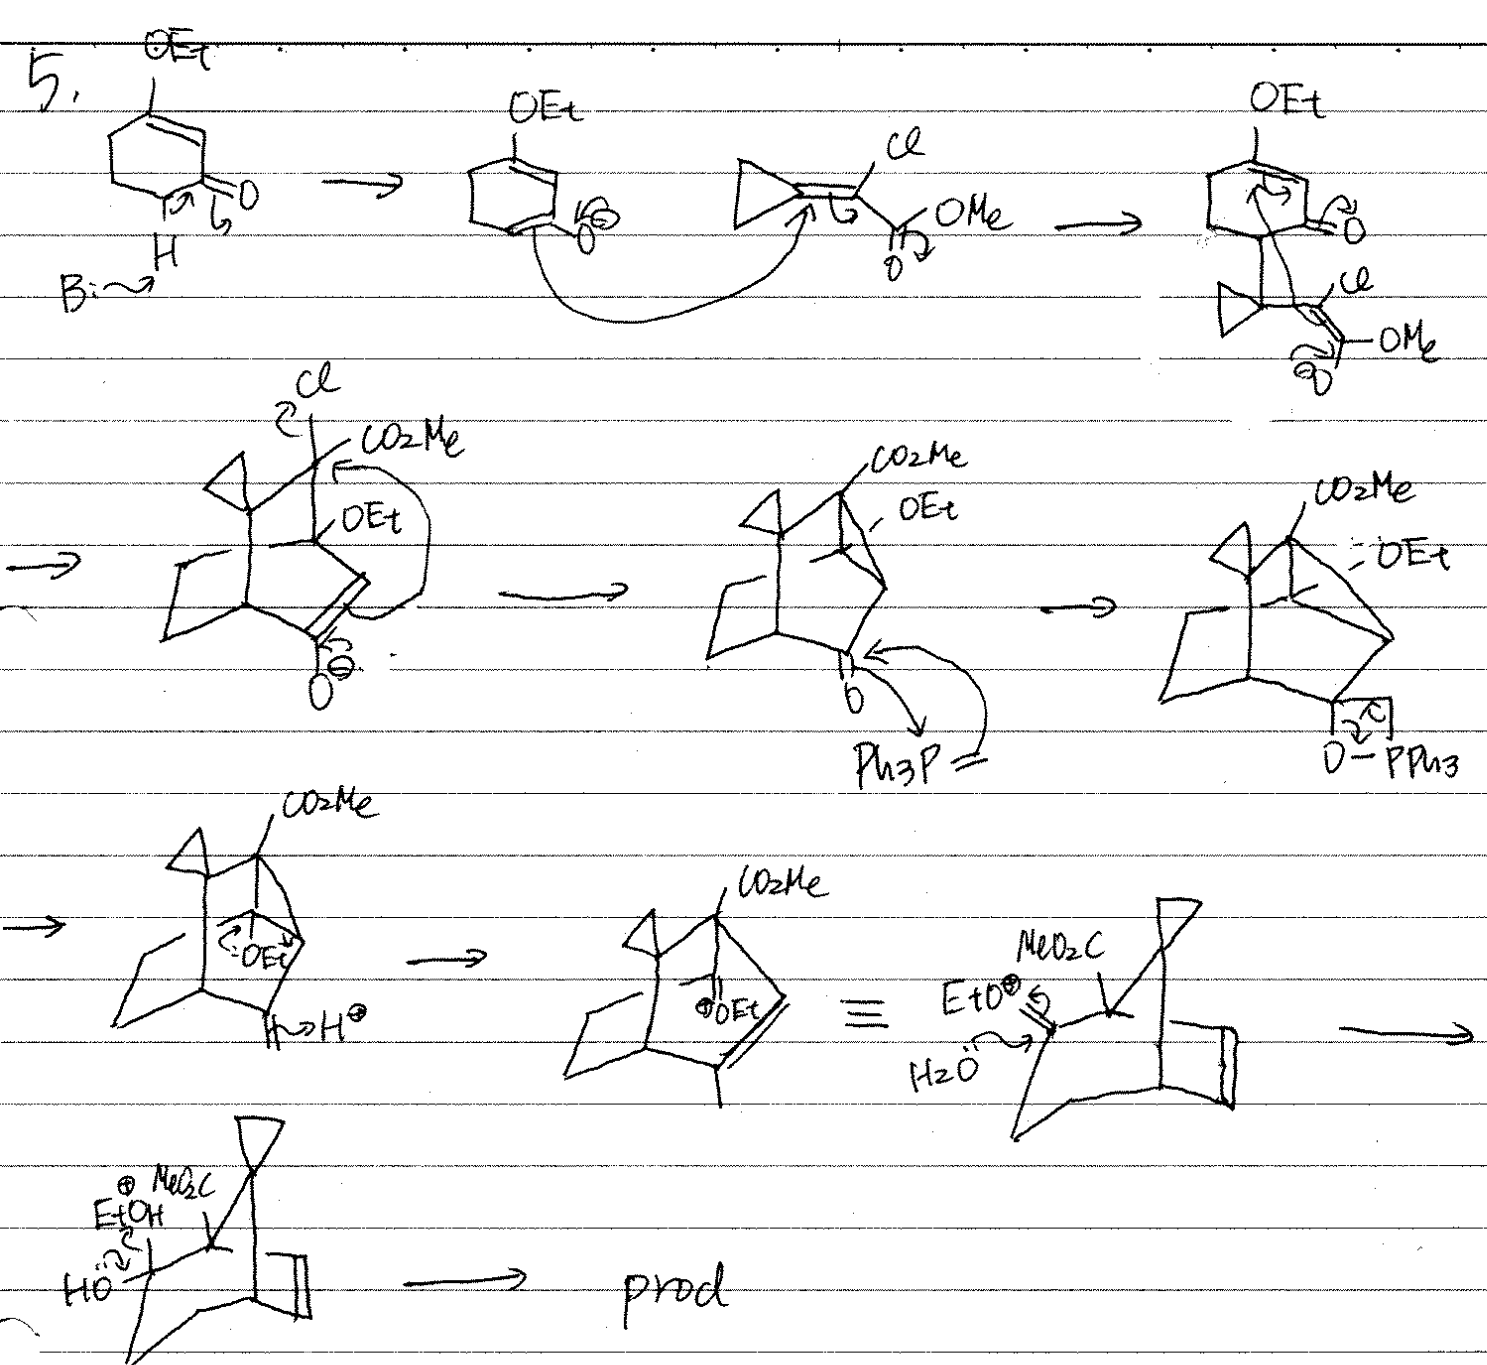 5.
OEt
O
H
B:
OEt
O⊖
Cl
OMe
O
OEt
O
Cl
OMe
⊖O
Cl
CO2Me
OEt
O⊖
CO2Me
OEt
O
Ph3P=
CO2Me
OEt
O-PPh3
CO2Me
:OEt
H⊕
CO2Me
⊕OEt
≡
MeO2C
EtO⊕
H2Ö
⊕ MeO2C
EtOH
HÖ
prod